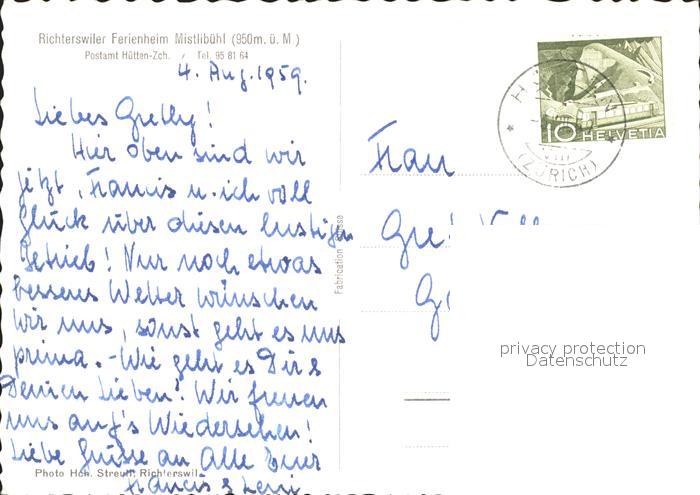 Richterswiler Ferienheim Mistlibühl (950m. ü. M.)
Postamt Hütten-Zch. Tel. 95 81 64
4. Aug. 1959.
Liebes Gretly!
Hier oben sind wir
jetzt, Francis u. ich voll
Glück über diesen lustigen
Betrieb! Nur noch etwas
besseres Wetter wünschen
wir uns, sonst geht es uns
prima. - Wie geht es Dir &
Deinen Lieben? Wir freuen
uns auf's Wiedersehen!
Liebe Grüsse an Alle Eure
Francis & Leni
Photo Hch. Streuli, Richterswil
Fabrication Suisse
10 HELVETIA
(ZÜRICH)
VIII
Frau
privacy protection
Datenschutz